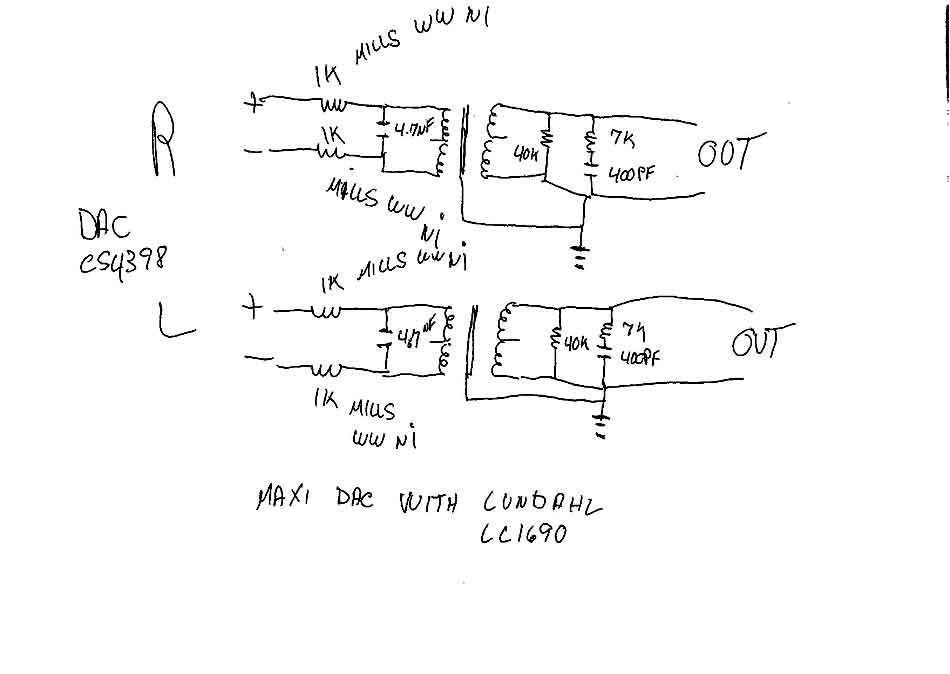 MILLS WW NI
1K
R
+
1K
4.7NF
7K
OUT
40K
400PF
-
MILLS WW
NI
DAC
CS4398
1K MILLS WW NI
L
+
4.7NF
7K
40K
400PF
OUT
-
1K MILLS
WW NI
MAXI DAC WITH LUNDAHL
LL1690